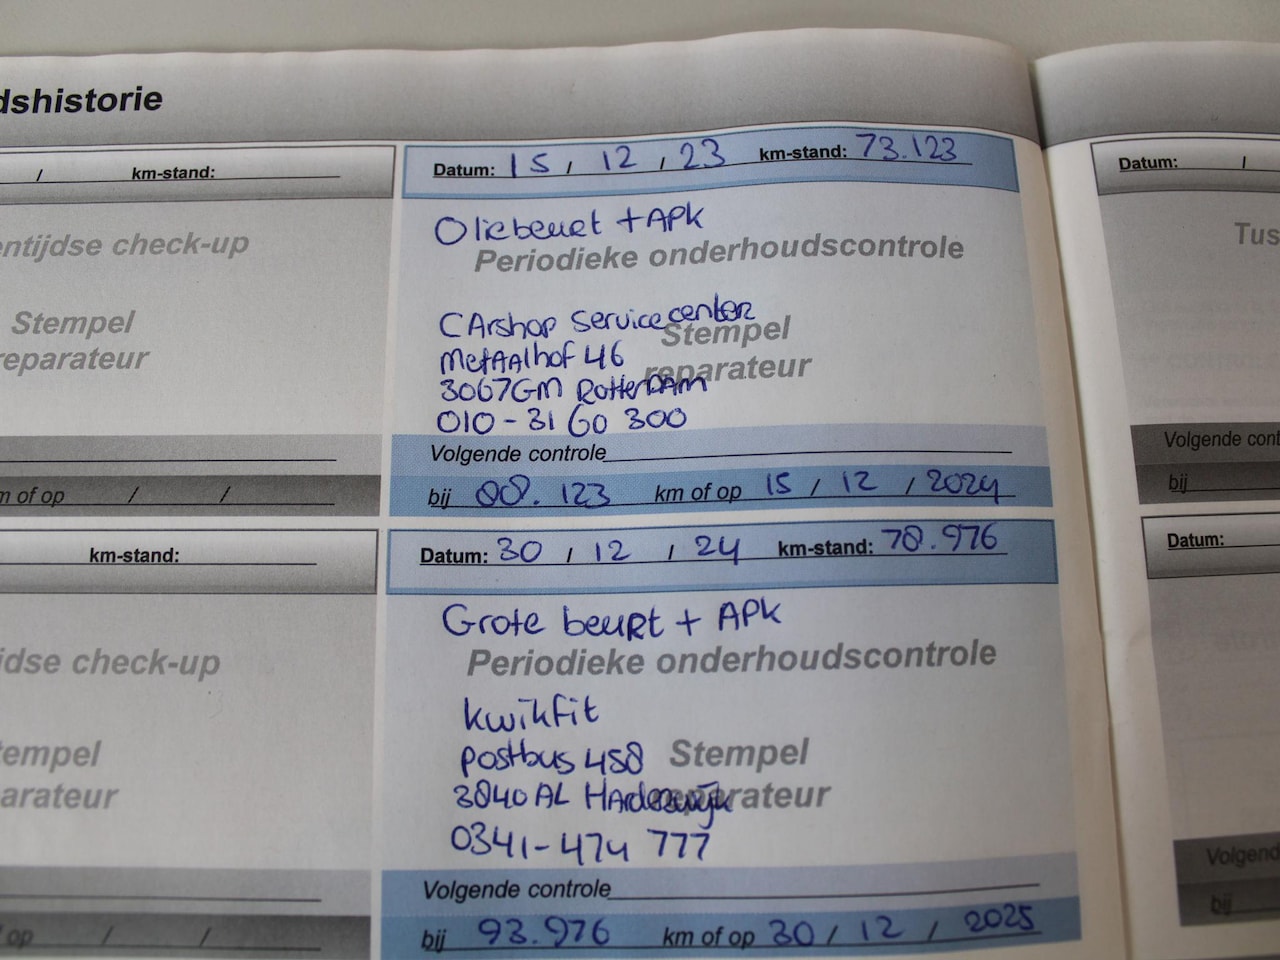 dshistorie
/ km-stand:
entijdse check-up
Stempel
reparateur
m of op / /
km-stand:
jdse check-up
tempel
arateur
op / /
Datum: 15 / 12 / 23 km-stand: 73.123
Oliebeurt + APK
Periodieke onderhoudscontrole
CArshop Servicecenter
Stempel
MetAAlhof 46
reparateur
3067GM RotterDAm
010 - 31 60 300
Volgende controle
bij 88.123 km of op 15 / 12 / 2024
Datum: 30 / 12 / 24 km-stand: 78.976
Grote beurt + APK
Periodieke onderhoudscontrole
kwikfit
postbus 458 Stempel
3840 AL Harderwijk reparateur
0341 - 474 777
Volgende controle
bij 93.976 km of op 30 / 12 / 2025
Datum: /
Tus
Volgende cont
bij
Datum:
Volgend
bij